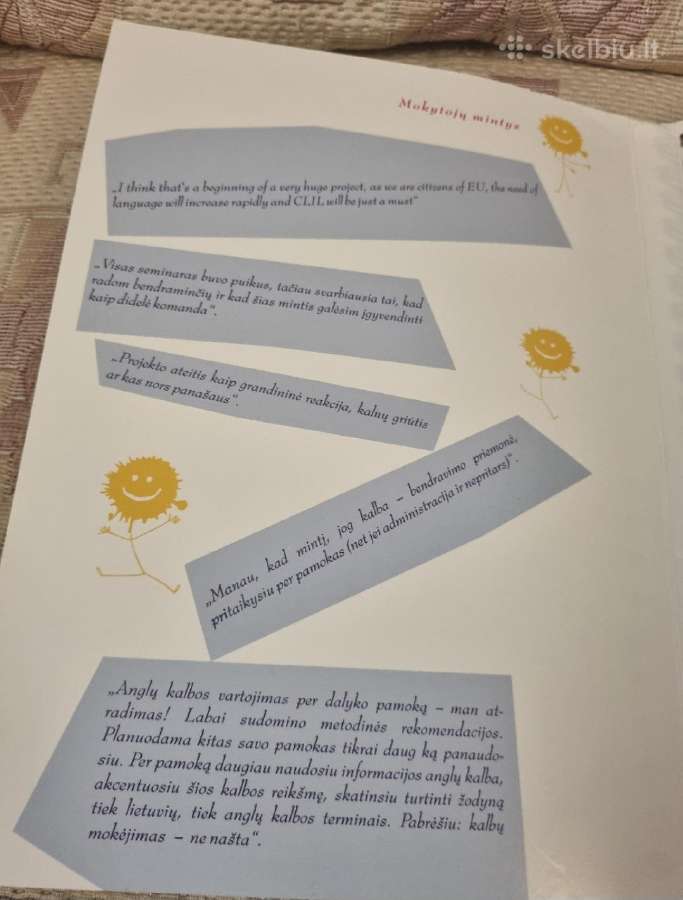 skelbiu.lt
Mokytojų mintys
„I think that's a beginning of a very huge project, as we are citizens of EU, the need of
language will increase rapidly and CLIL will be just a must“
„Visas seminaras buvo puikus, tačiau svarbiausia tai, kad
radom bendraminčių ir kad šias mintis galėsim įgyvendinti
kaip didelė komanda“.
„Projekto ateitis kaip grandininė reakcija, kalnų griūtis
ar kas nors panašaus“.
„Manau, kad mintį, jog kalba – bendravimo priemonė,
pritaikysiu per pamokas (net jei administracija ir nepritars)“.
„Anglų kalbos vartojimas per dalyko pamoką – man at-
radimas! Labai sudomino metodinės rekomendacijos.
Planuodama kitas savo pamokas tikrai daug ką panaudo-
siu. Per pamoką daugiau naudosiu informacijos anglų kalba,
akcentuosiu šios kalbos reikšmę, skatinsiu turtinti žodyną
tiek lietuvių, tiek anglų kalbos terminais. Pabrėšiu: kalbų
mokėjimas – ne našta“.